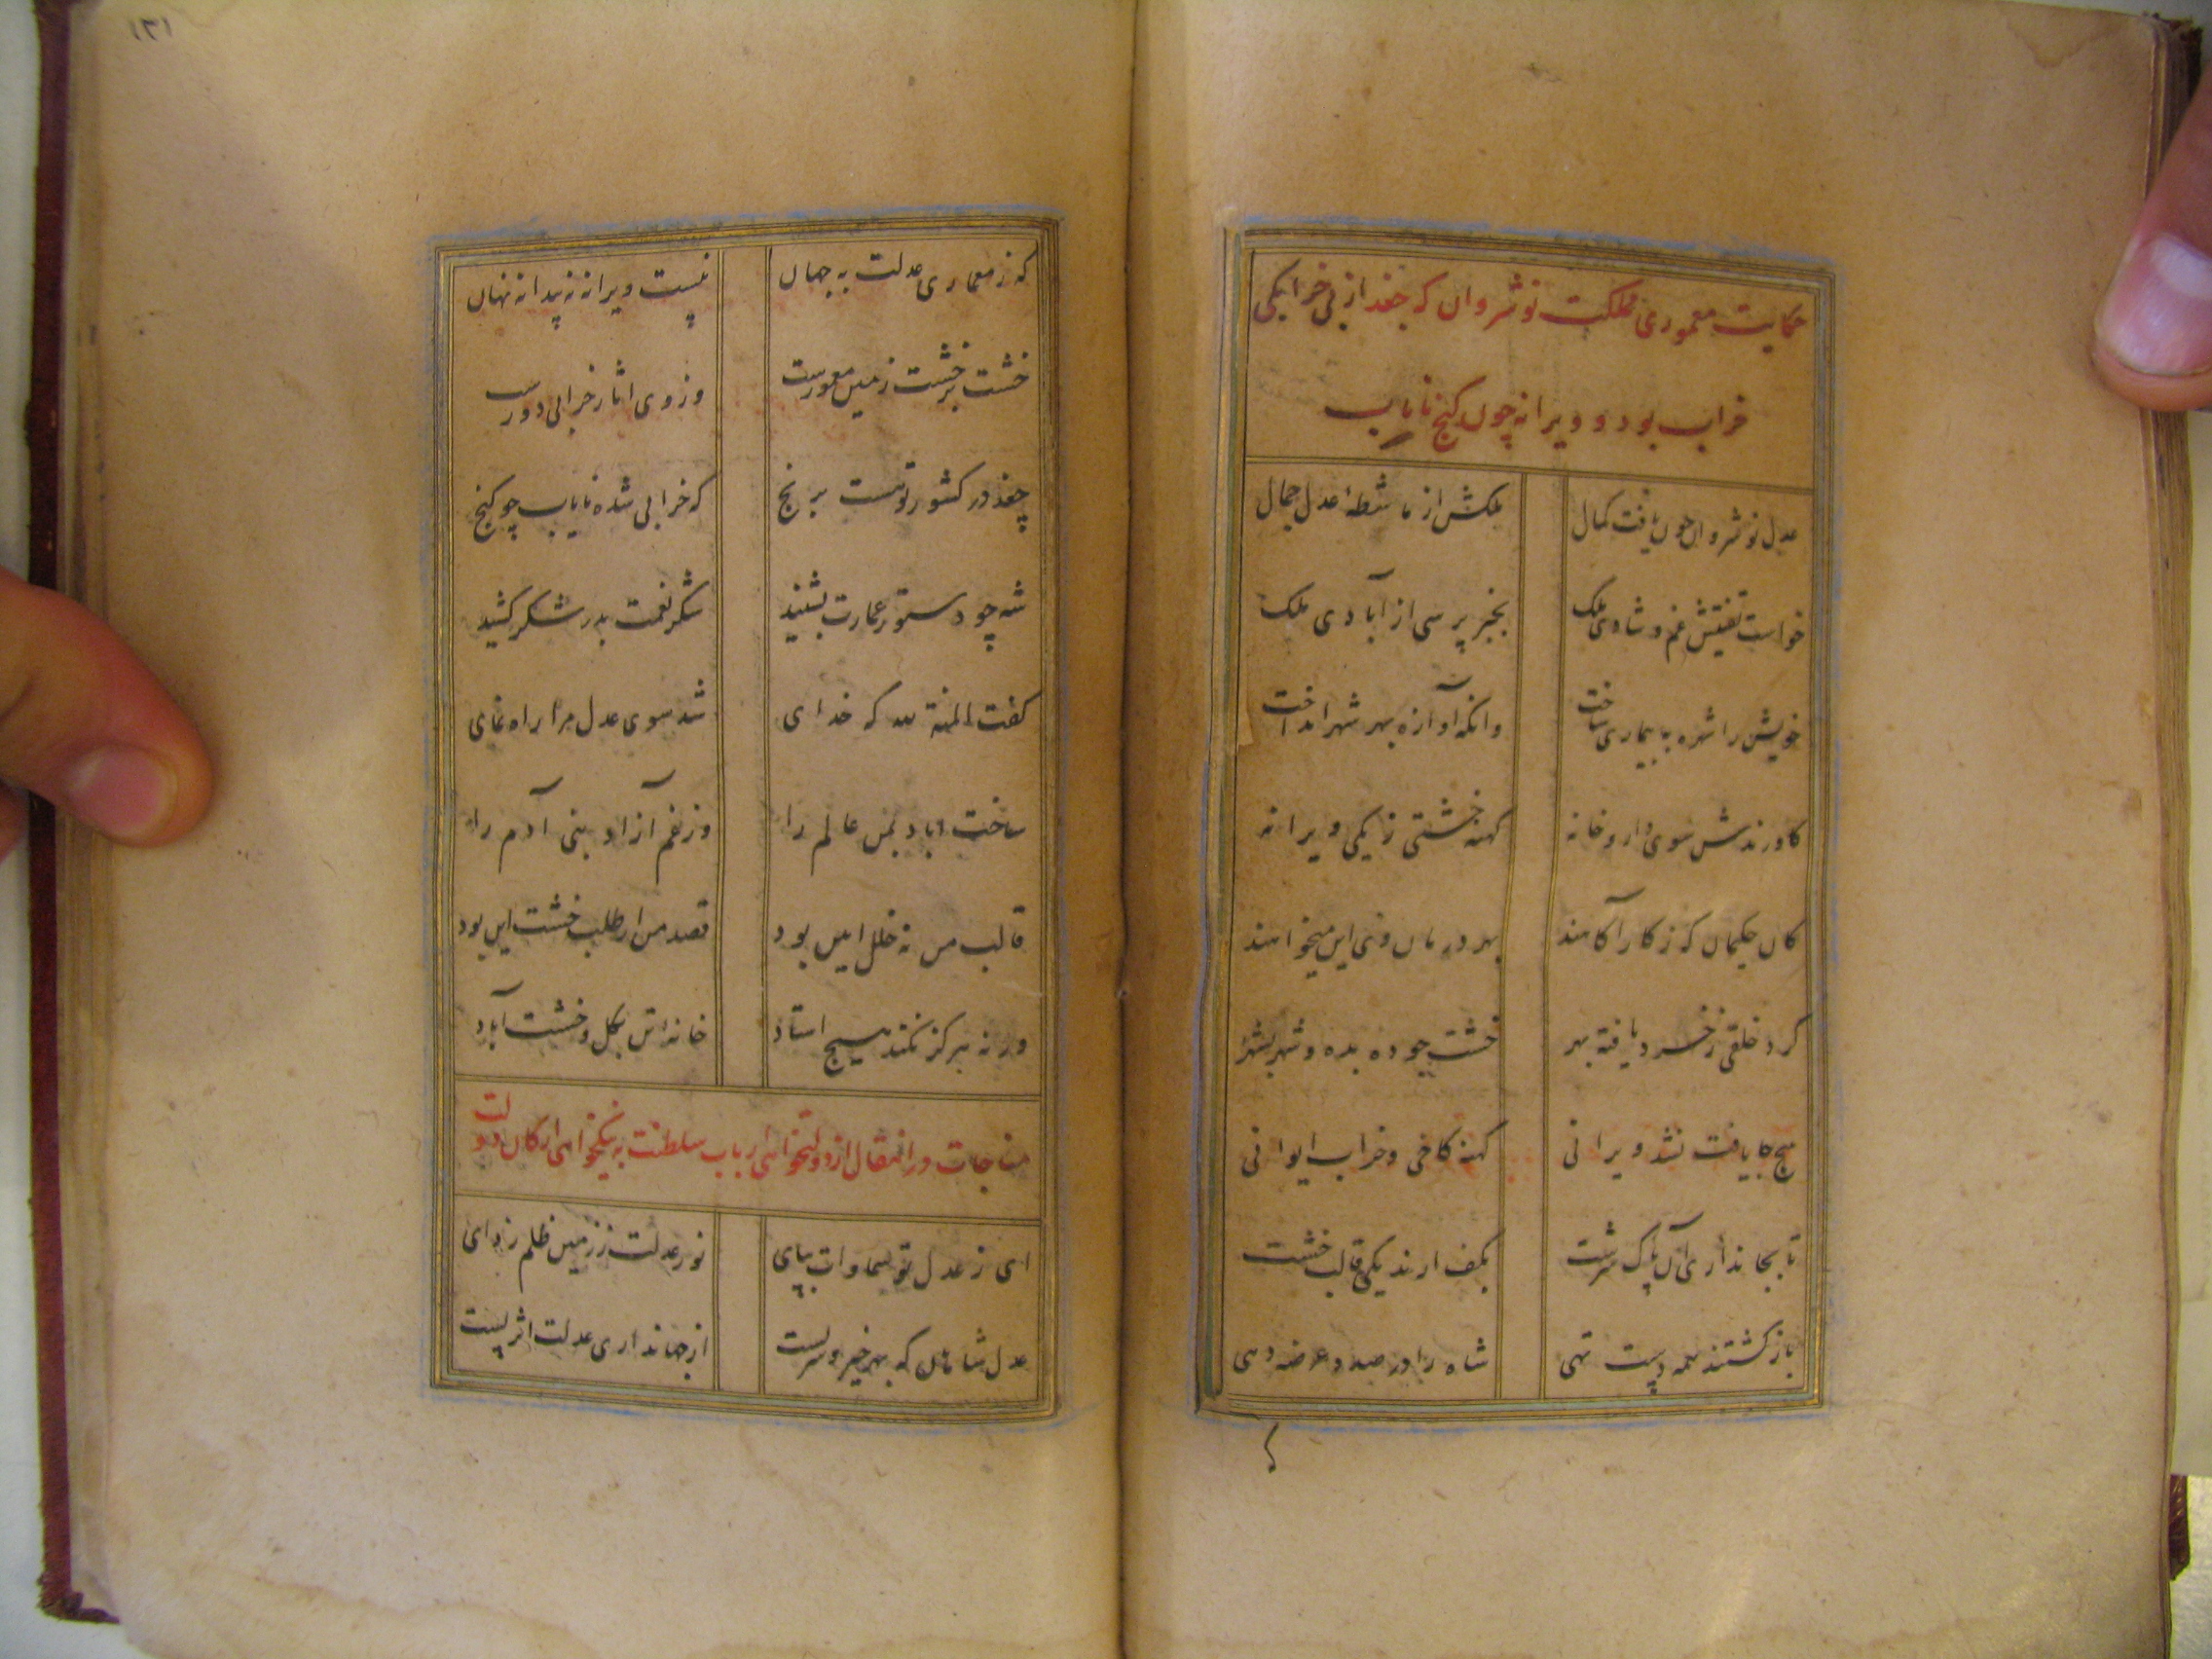 حکایت معموری مملکت نوشروان که جغد از بی خرابگی
خراب بود و ویرانه چون گنج نایاب
عدل نوشروان چون یافت کمال ملکش از ماشطۀ عدل جمال
خواست تفتیش غم و شادی ملک بخبر پرسی از آبادی ملک
خویش را شهره به بیماری ساخت وانگه آوازه بهر شهر انداخت
کاورندش سوی دارو خانه کهنه خشتی ز یکی ویرانه
کان حکیمان که ز کار آگاهند بهر درمان وی این میخواهند
گرد خلقی ز خرد یافته بهر خشت جو ده بده و شهر بشهر
هیچ جا یافت نشد ویرانی کهنه کاخی و خراب ایوانی
تا بجا نداری آن پاک سرشت بکف ارند یکی قالب خشت
باز گشتند همه دست تهی شاه را در صدد عرضه دهی
۱۳۱
که ز معماری عدلت به جهان نیست ویرانه نه پیدا نه نهان
خشت بر خشت زمین معمورست وز وی اثار خرابی دورست
چغد در کشور تو هست برنج که خرابی شده نایاب چو گنج
شه چو دستور عمارت بشنید شکر نعمت بدر شکر کشید
گفت المنة لله که خدای شد سوی عدل مرا راه نمای
ساخت اباد بمن عالم را وز غم آزاد بنی آدم را
قالب من نه خلل ایین بود قصد من از طلب خشت این بود
ورنه هرگز نکند هیچ استاد خانه اش بگل و خشت آباد
مناجات در انتقال از دولتخواهی ارباب سلطنت به نیکخواهی ارکان دولت
ای ز عدل تو سماوات بپای نور عدلت ز زمین ظلم زدای
عدل شاهان که بهر خیر و سرست از جهانداری عدلت اثریست